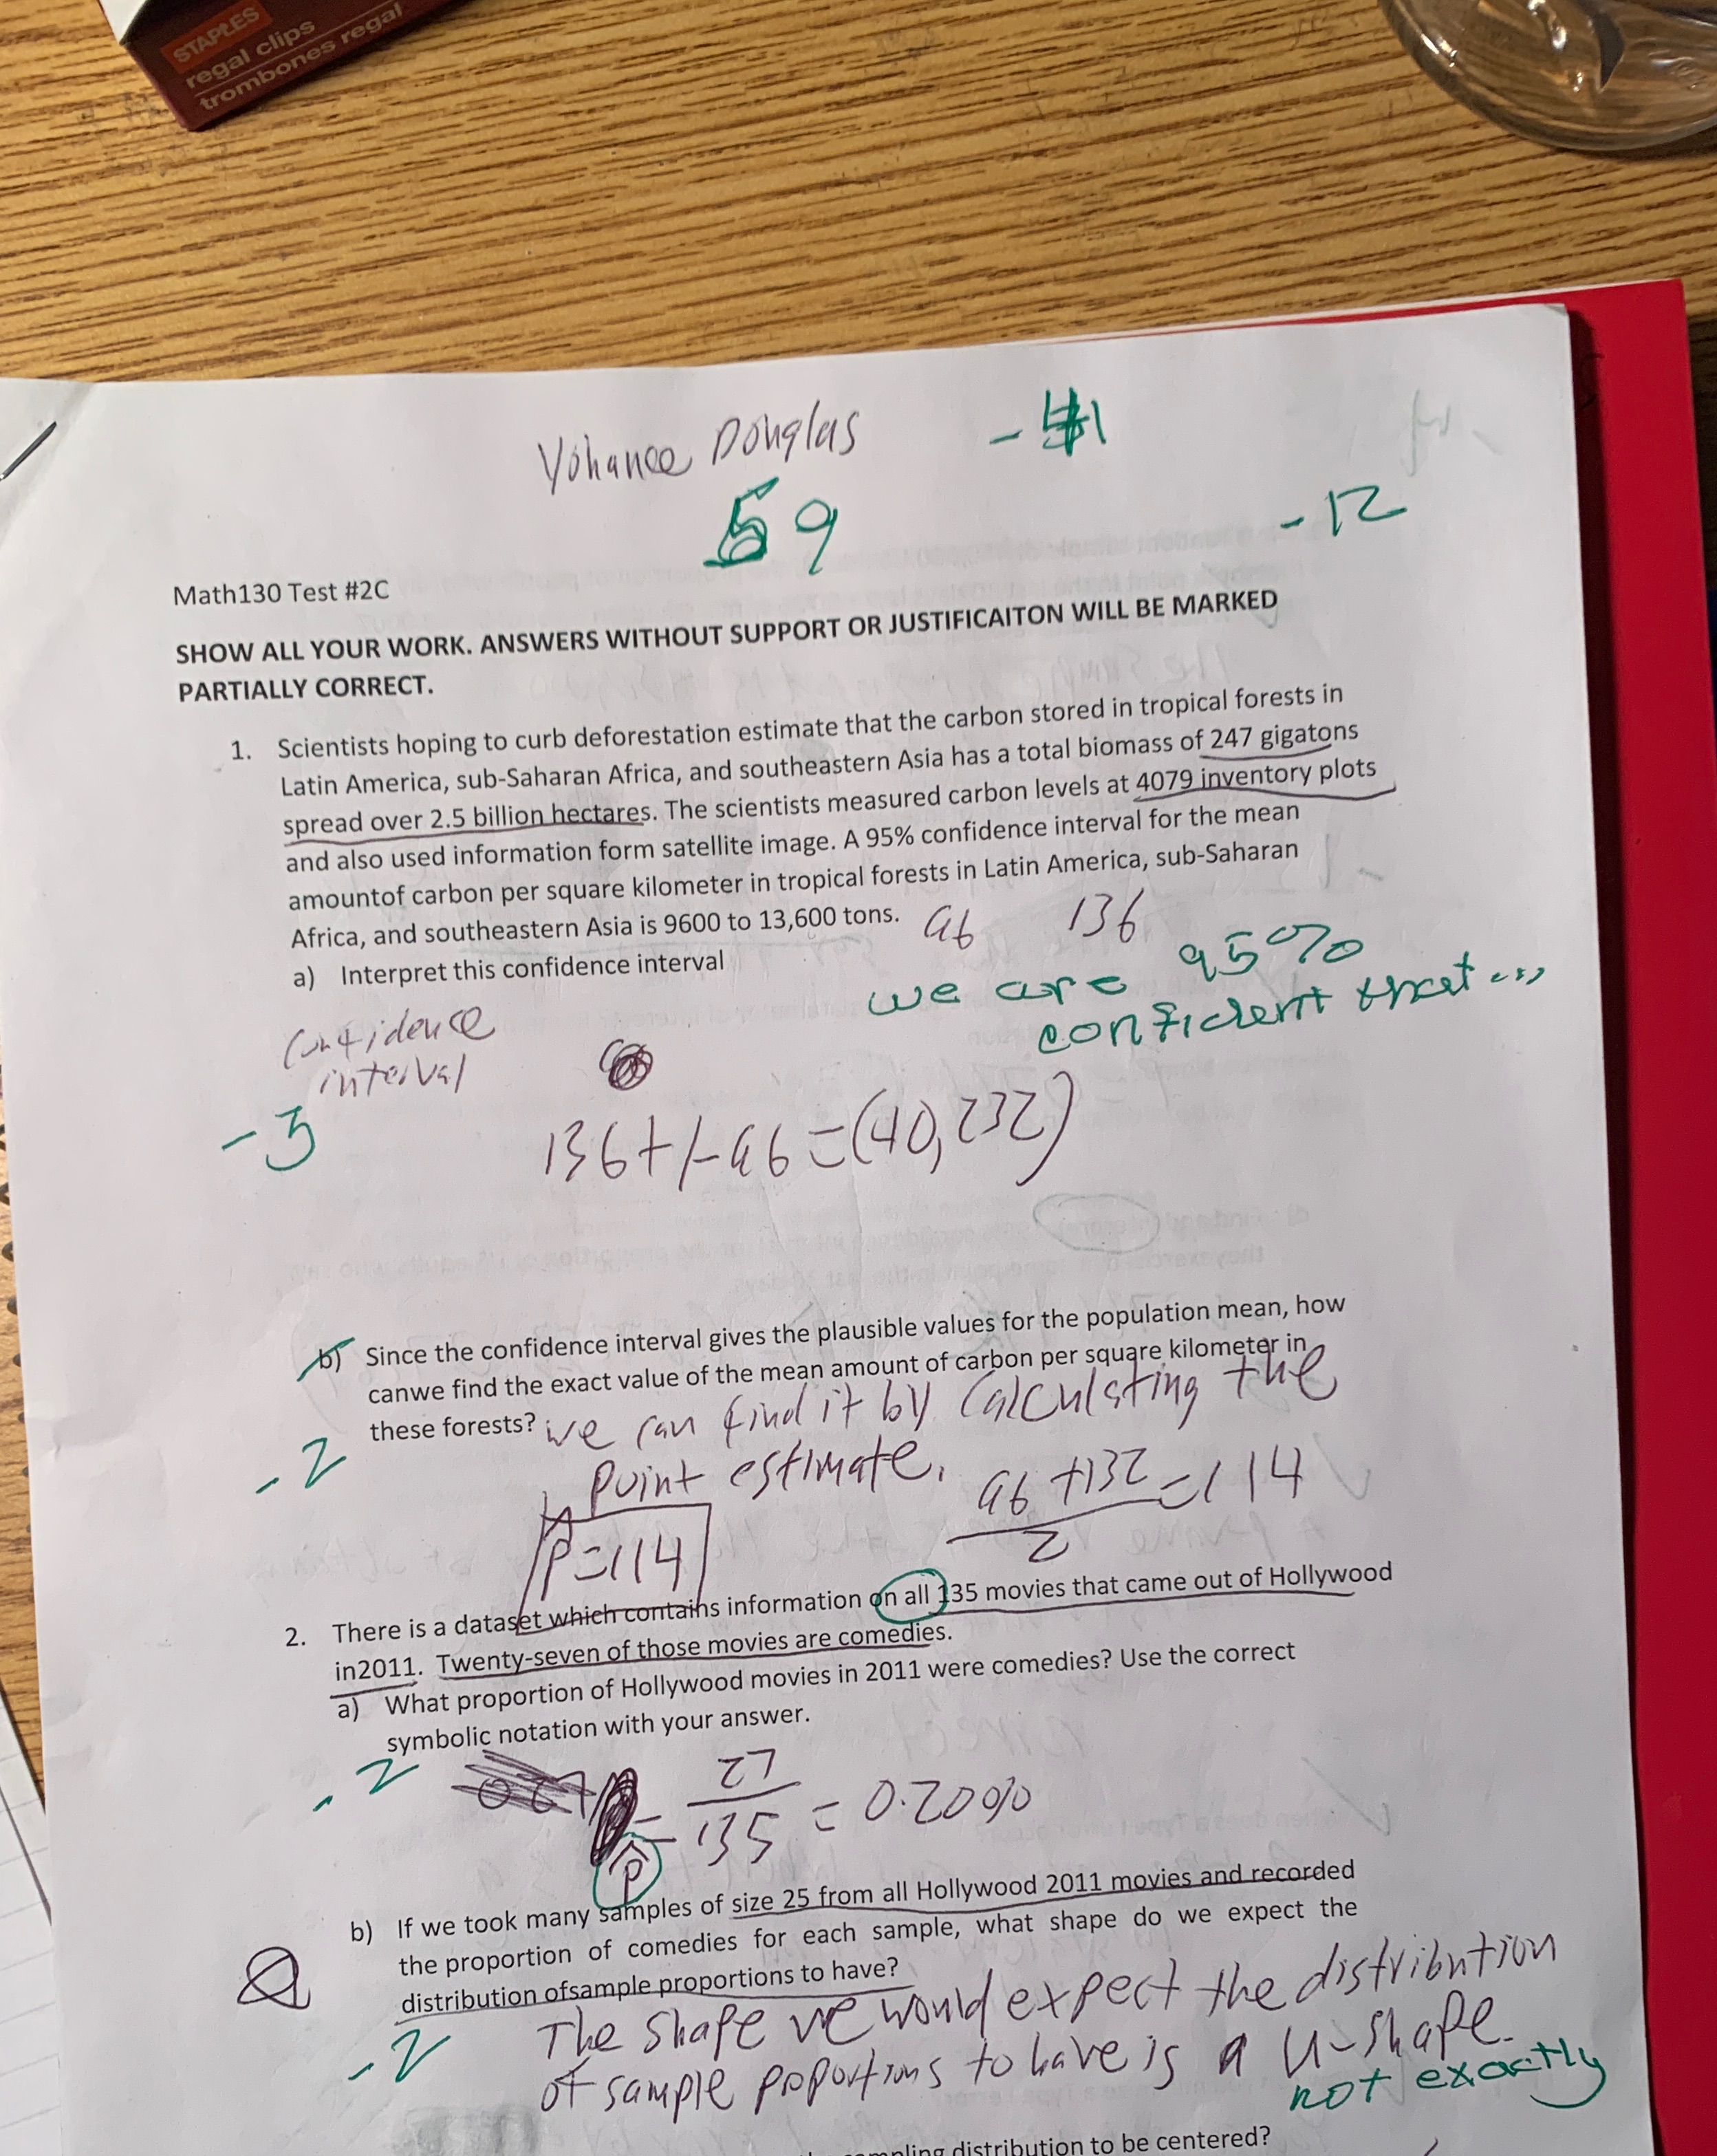 STAPLES
regal clips
trombones regal
Yohance Douglas
59
-12
Math130 Test #2C
SHOW ALL YOUR WORK. ANSWERS WITHOUT SUPPORT OR JUSTIFICAITON WILL BE MARKED
PARTIALLY CORRECT.
1. Scientists hoping to curb deforestation estimate that the carbon stored in tropical forests in
Latin America, sub-Saharan Africa, and southeastern Asia has a total biomass of 247 gigatons
spread over 2.5 billion hectares. The scientists measured carbon levels at 4079 inventory plots
and also used information form satellite image. A 95% confidence interval for the mean
amountof carbon per square kilometer in tropical forests in Latin America, sub-Saharan
Africa, and southeastern Asia is 9600 to 13,600 tons. 96 136
a) Interpret this confidence interval
we are 95%
confident that...
Confidence
interval
-3
136+/-96=(40,232)
b) Since the confidence interval gives the plausible values for the population mean, how
canwe find the exact value of the mean amount of carbon per square kilometer in
these forests? we can find it by calculating the
-2
point estimate. 96+132/2=114
p̂=114
2. There is a dataset which contains information on all 135 movies that came out of Hollywood
in2011. Twenty-seven of those movies are comedies.
a) What proportion of Hollywood movies in 2011 were comedies? Use the correct
symbolic notation with your answer.
-2
p̂ = 27/135 = 0.20%
b) If we took many samples of size 25 from all Hollywood 2011 movies and recorded
the proportion of comedies for each sample, what shape do we expect the
distribution ofsample proportions to have?
-2
The shape we would expect the distribution
of sample proportions to have is a U-shape.
not exactly
distribution to be centered?